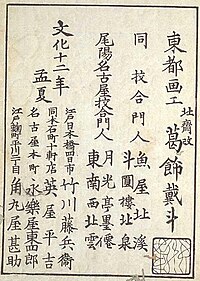 東都画工
北斎改
葛飾戴斗
同 校合門人
魚屋北溪
斗圓樓北泉
尾陽名古屋校合門人
月光亭墨僊
東南西北雲
文化十二年
孟夏
江戸日本橋四日市
竹川藤兵衛
同本石町十軒店
英屋平吉
名古屋本町
永樂屋東四郎
江戸麹町平川二丁目
角丸屋甚助